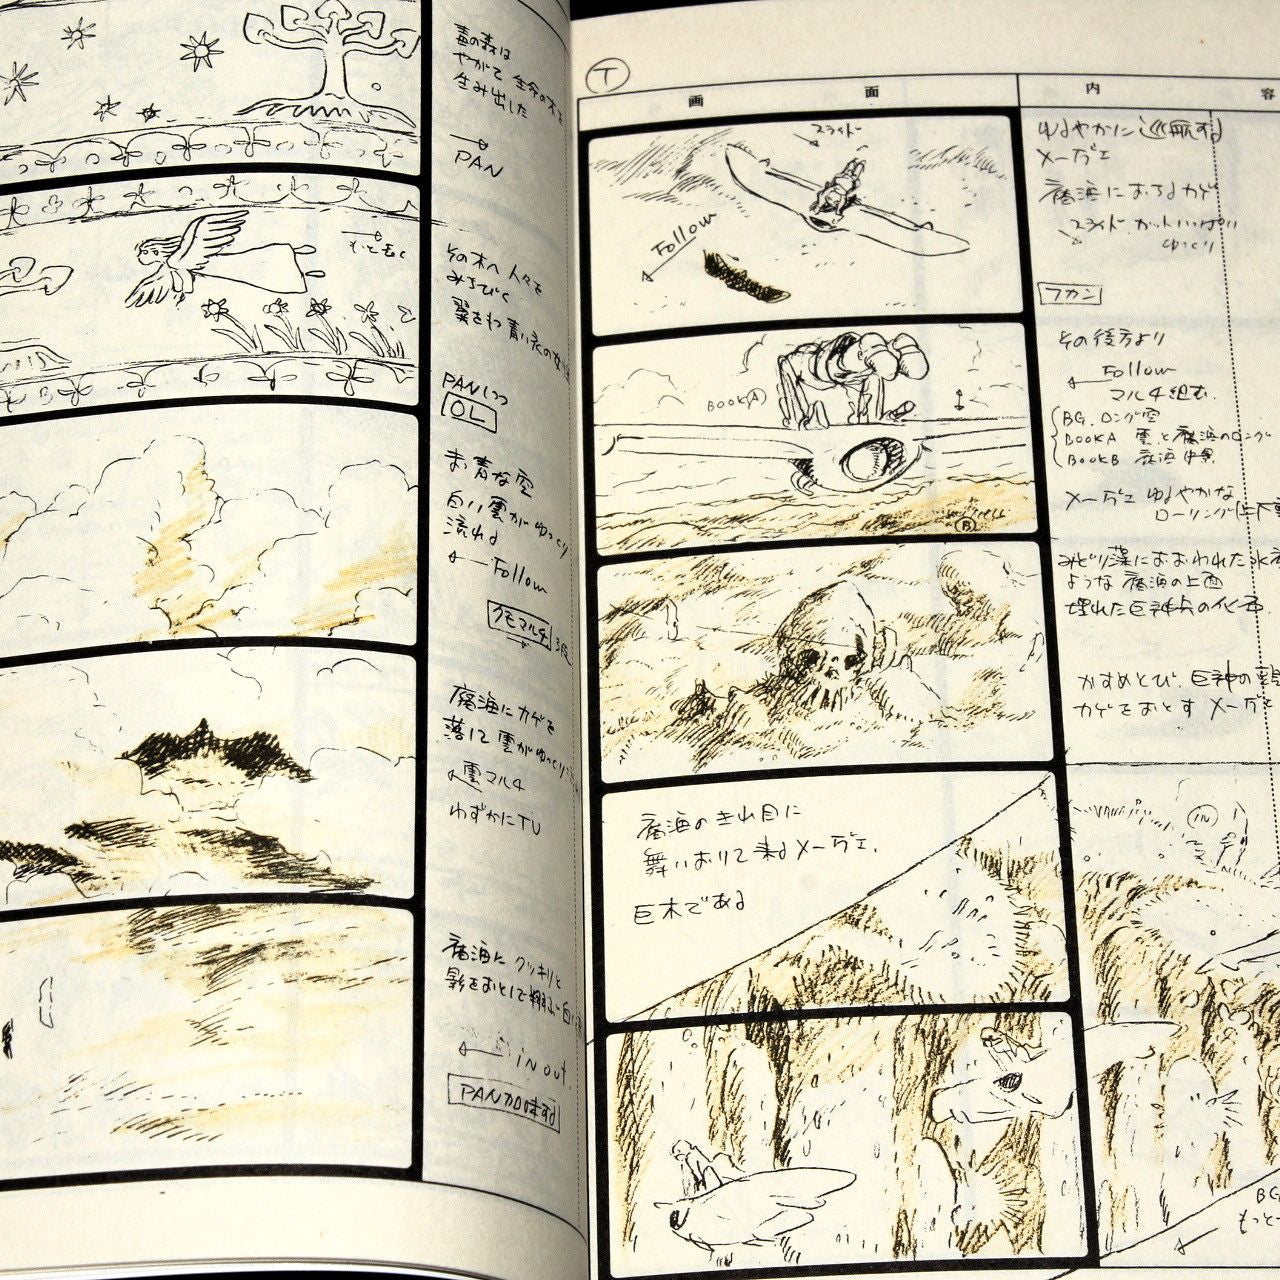 毒の森は
やがて 生命の木を
生み出した
PAN
もっと長く
その木へ 人々を
みちびく
翼をもつ 青い衣の
PANしつつ
OL
まっ青な空
白い雲がゆっくり
流れる
Follow
クモマルチ 3段
腐海にカゲを
落して 雲がゆっくり
雲マルチ
わずかにTU
腐海に クッキリと
影をおとして
in out.
PAN加味する
T
画 面 内 容
スライド
Follow
ゆるやかに 巡航する
メーヴェ
腐海におちるカゲ
スライド カットいっぱい
ゆっくり
フカン
BOOK(A)
B
その後方より
Follow
マルチ組む.
BG. ロング空
BOOKA 雲と腐海のロング
BOOKB 腐海
メーヴェ ゆるやかな
ローリング(上下動
みどり藻におおわれた
ような 腐海の上面
埋れた巨神兵の化石
かすめとび. 巨神の
カゲをおとす メーヴェ
腐海のきれ目に
舞いおりて来るメーヴェ.
巨木である
IN
BG
もっと